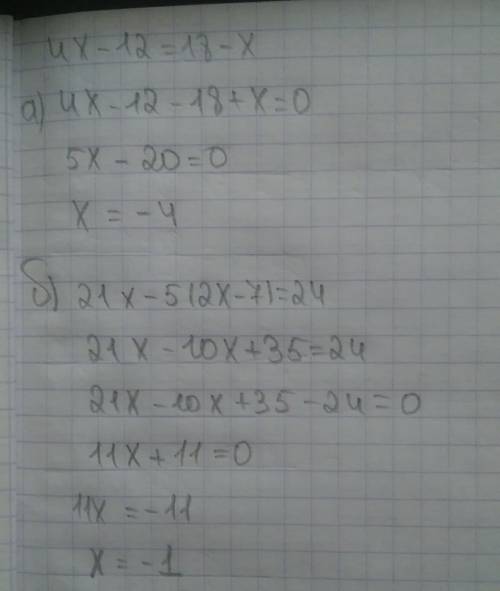 4x-12=18-x
а) 4x-12-18+x=0
5x-20=0
x=-4
б) 21x-5(2x-7)=24
21x-10x+35=24
21x-10x+35-24=0
11x+11=0
11x=-11
x=-1